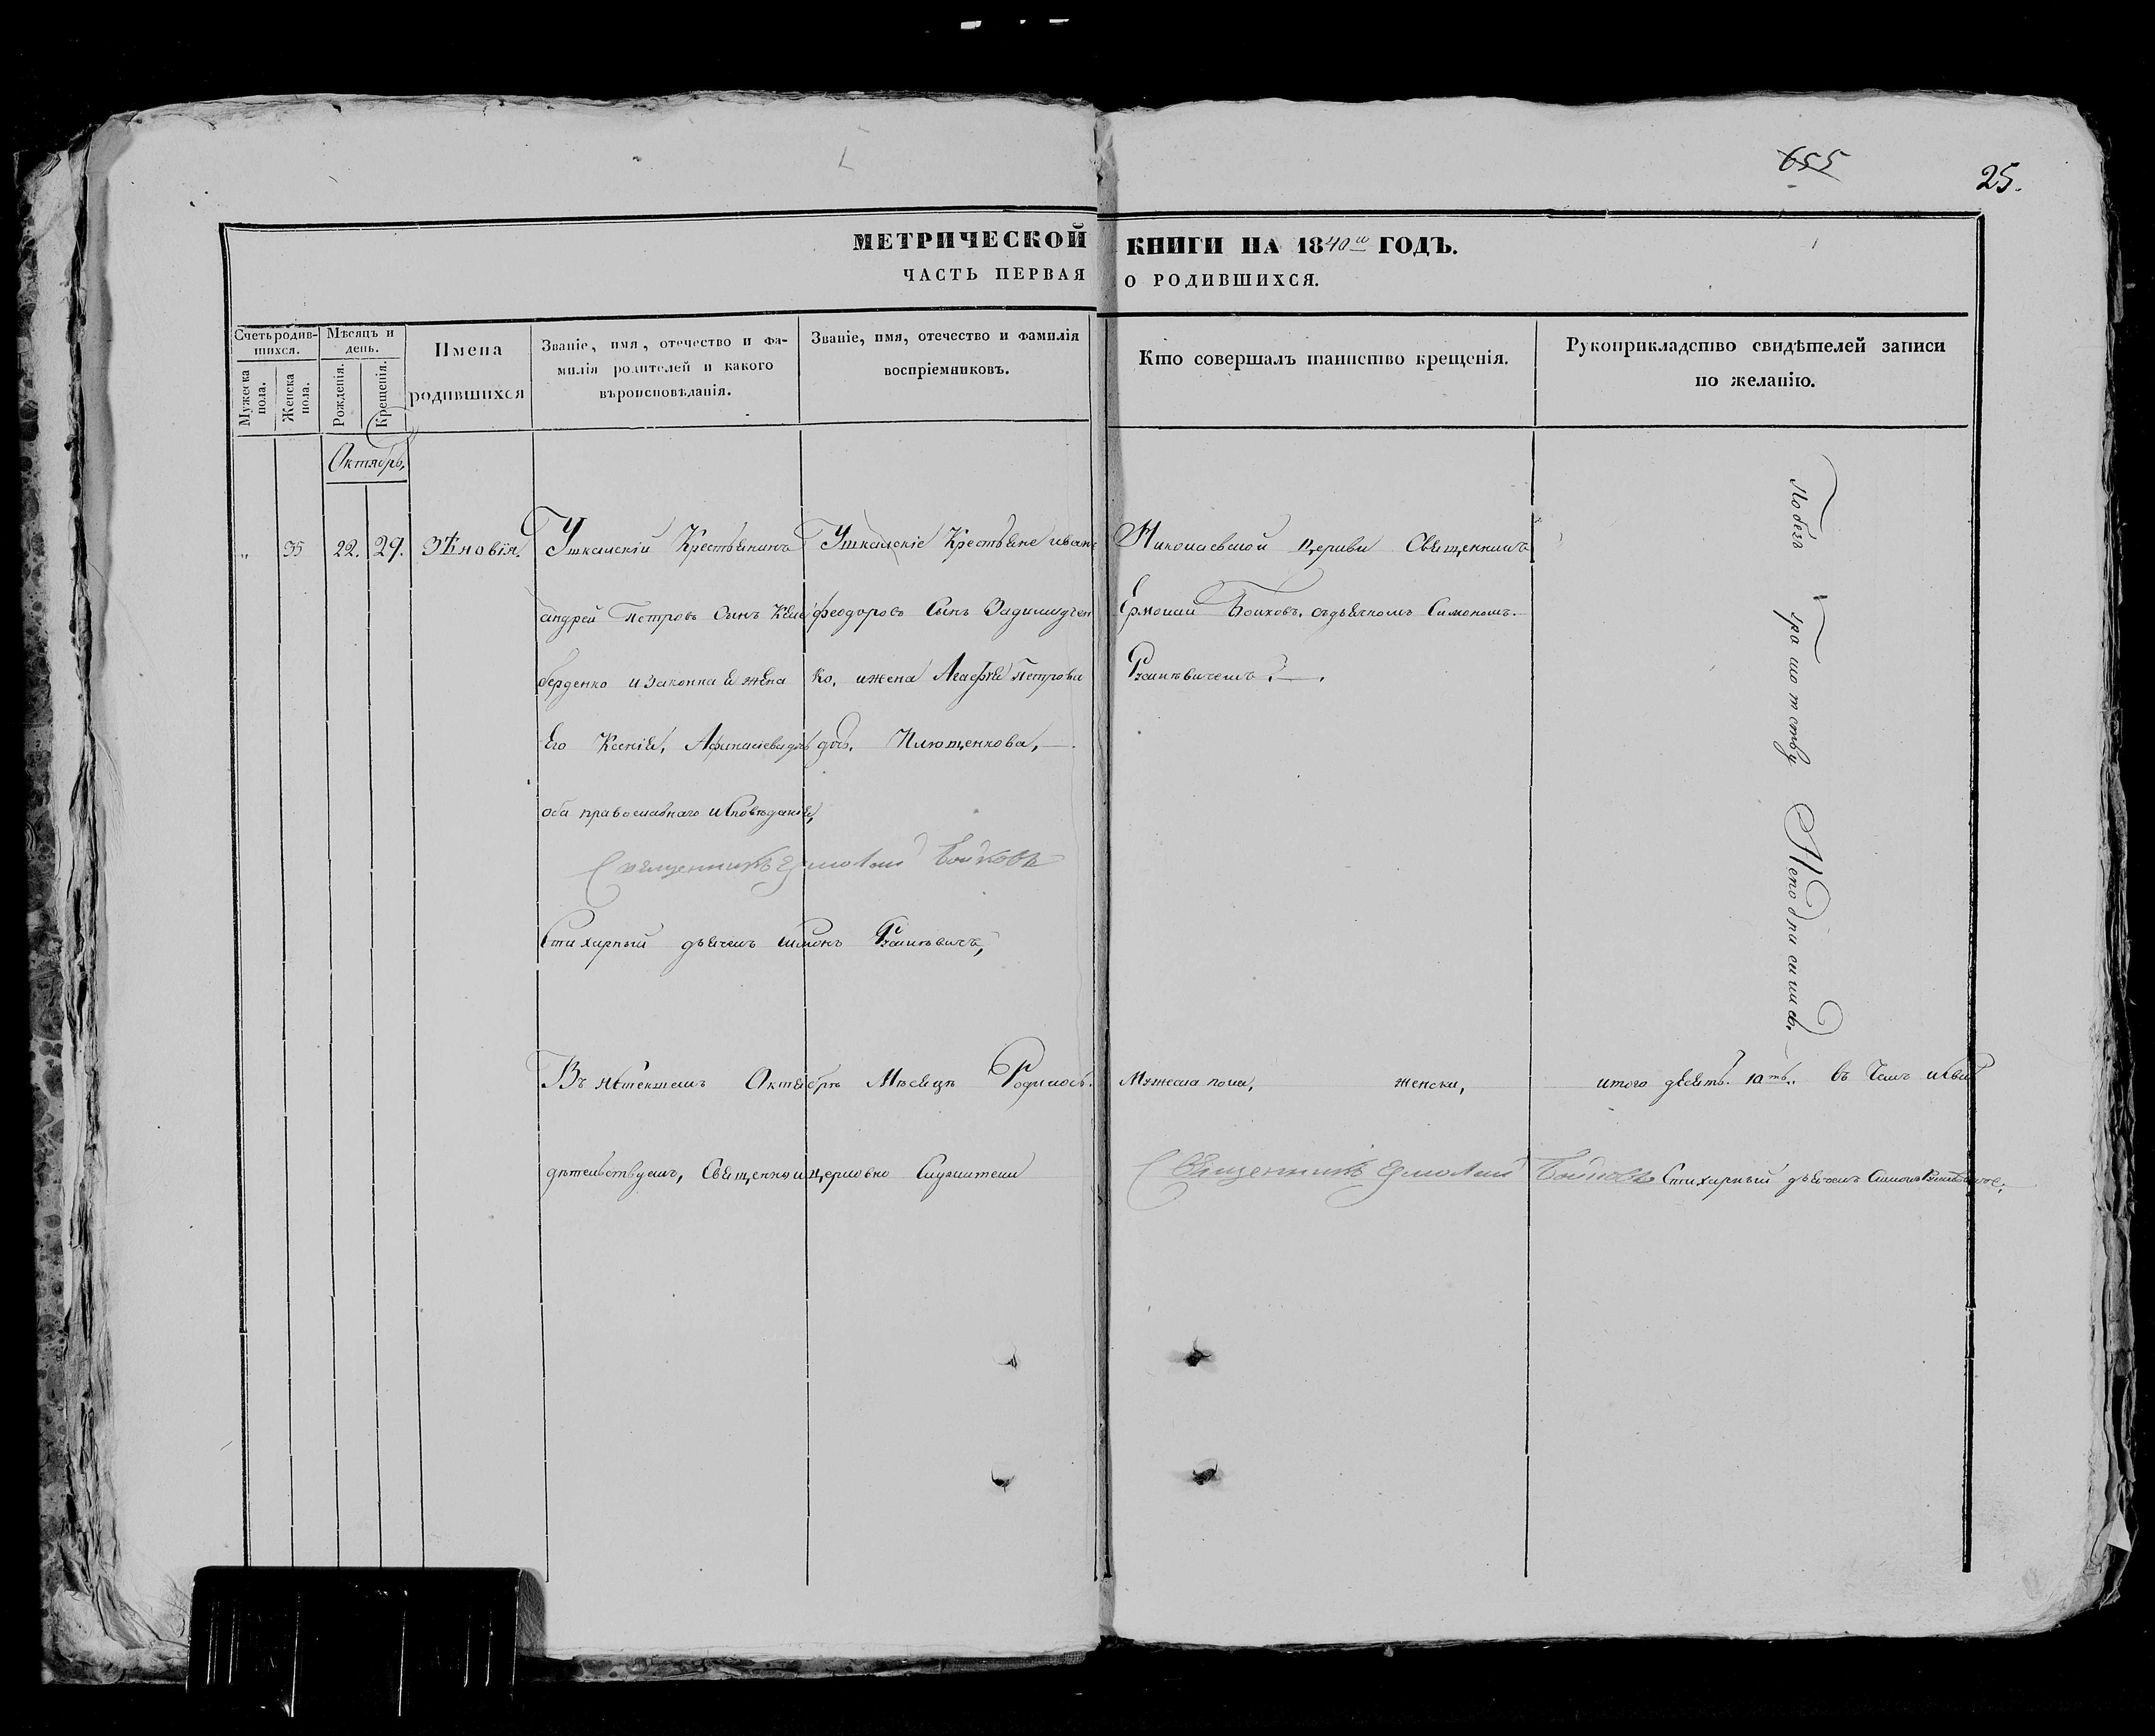 655
25.
МЕТРИЧЕСКОЙ КНИГИ НА 1840й ГОДЪ.
ЧАСТЬ ПЕРВАЯ О РОДИВШИХСЯ.
Счетъ родив-
шихся.
Мужеска
пола.
Женска
пола.
Мѣсяцъ и
день.
Рожденія.
Крещенія.
Имена
родившихся
Званіе, имя, отечество и фа-
милія родителей и какого
вѣроисповѣданія.
Званіе, имя, отечество и фамилія
воспріемниковъ.
Кто совершалъ таинство крещенія.
Рукоприкладство свидѣтелей записи
по желанію.
Октябрь,
„ 35 22. 29. Зѣновія.
Ушкалскій Крестьянинъ
андрей Петровъ Сынъ
берденко и законная жена
Его Ксенія, Афанасіева дочь
оба православнаго исповѣданія,
Ушкалскіе Крестьяне иванъ
феодоровъ Сынъ
ко, и жена Агафія Петрова
дочь,
Николаевской церкви Священникъ
Ермолай Бойковъ, съ дьячкомъ Симономъ
По безграмотству Неподписались,
Священникъ Ермолай Бойковъ
Стихарный дьячекъ Симонъ
Въ Октябрѣ Мѣсяцѣ Родилось. Мужеска пола, женска, итого десять. 10ть. въ чемъ и сви
дѣтельствуемъ, Священно и церковно Служители Священникъ Ермолай Бойковъ Стихарный дьячекъ Симонъ